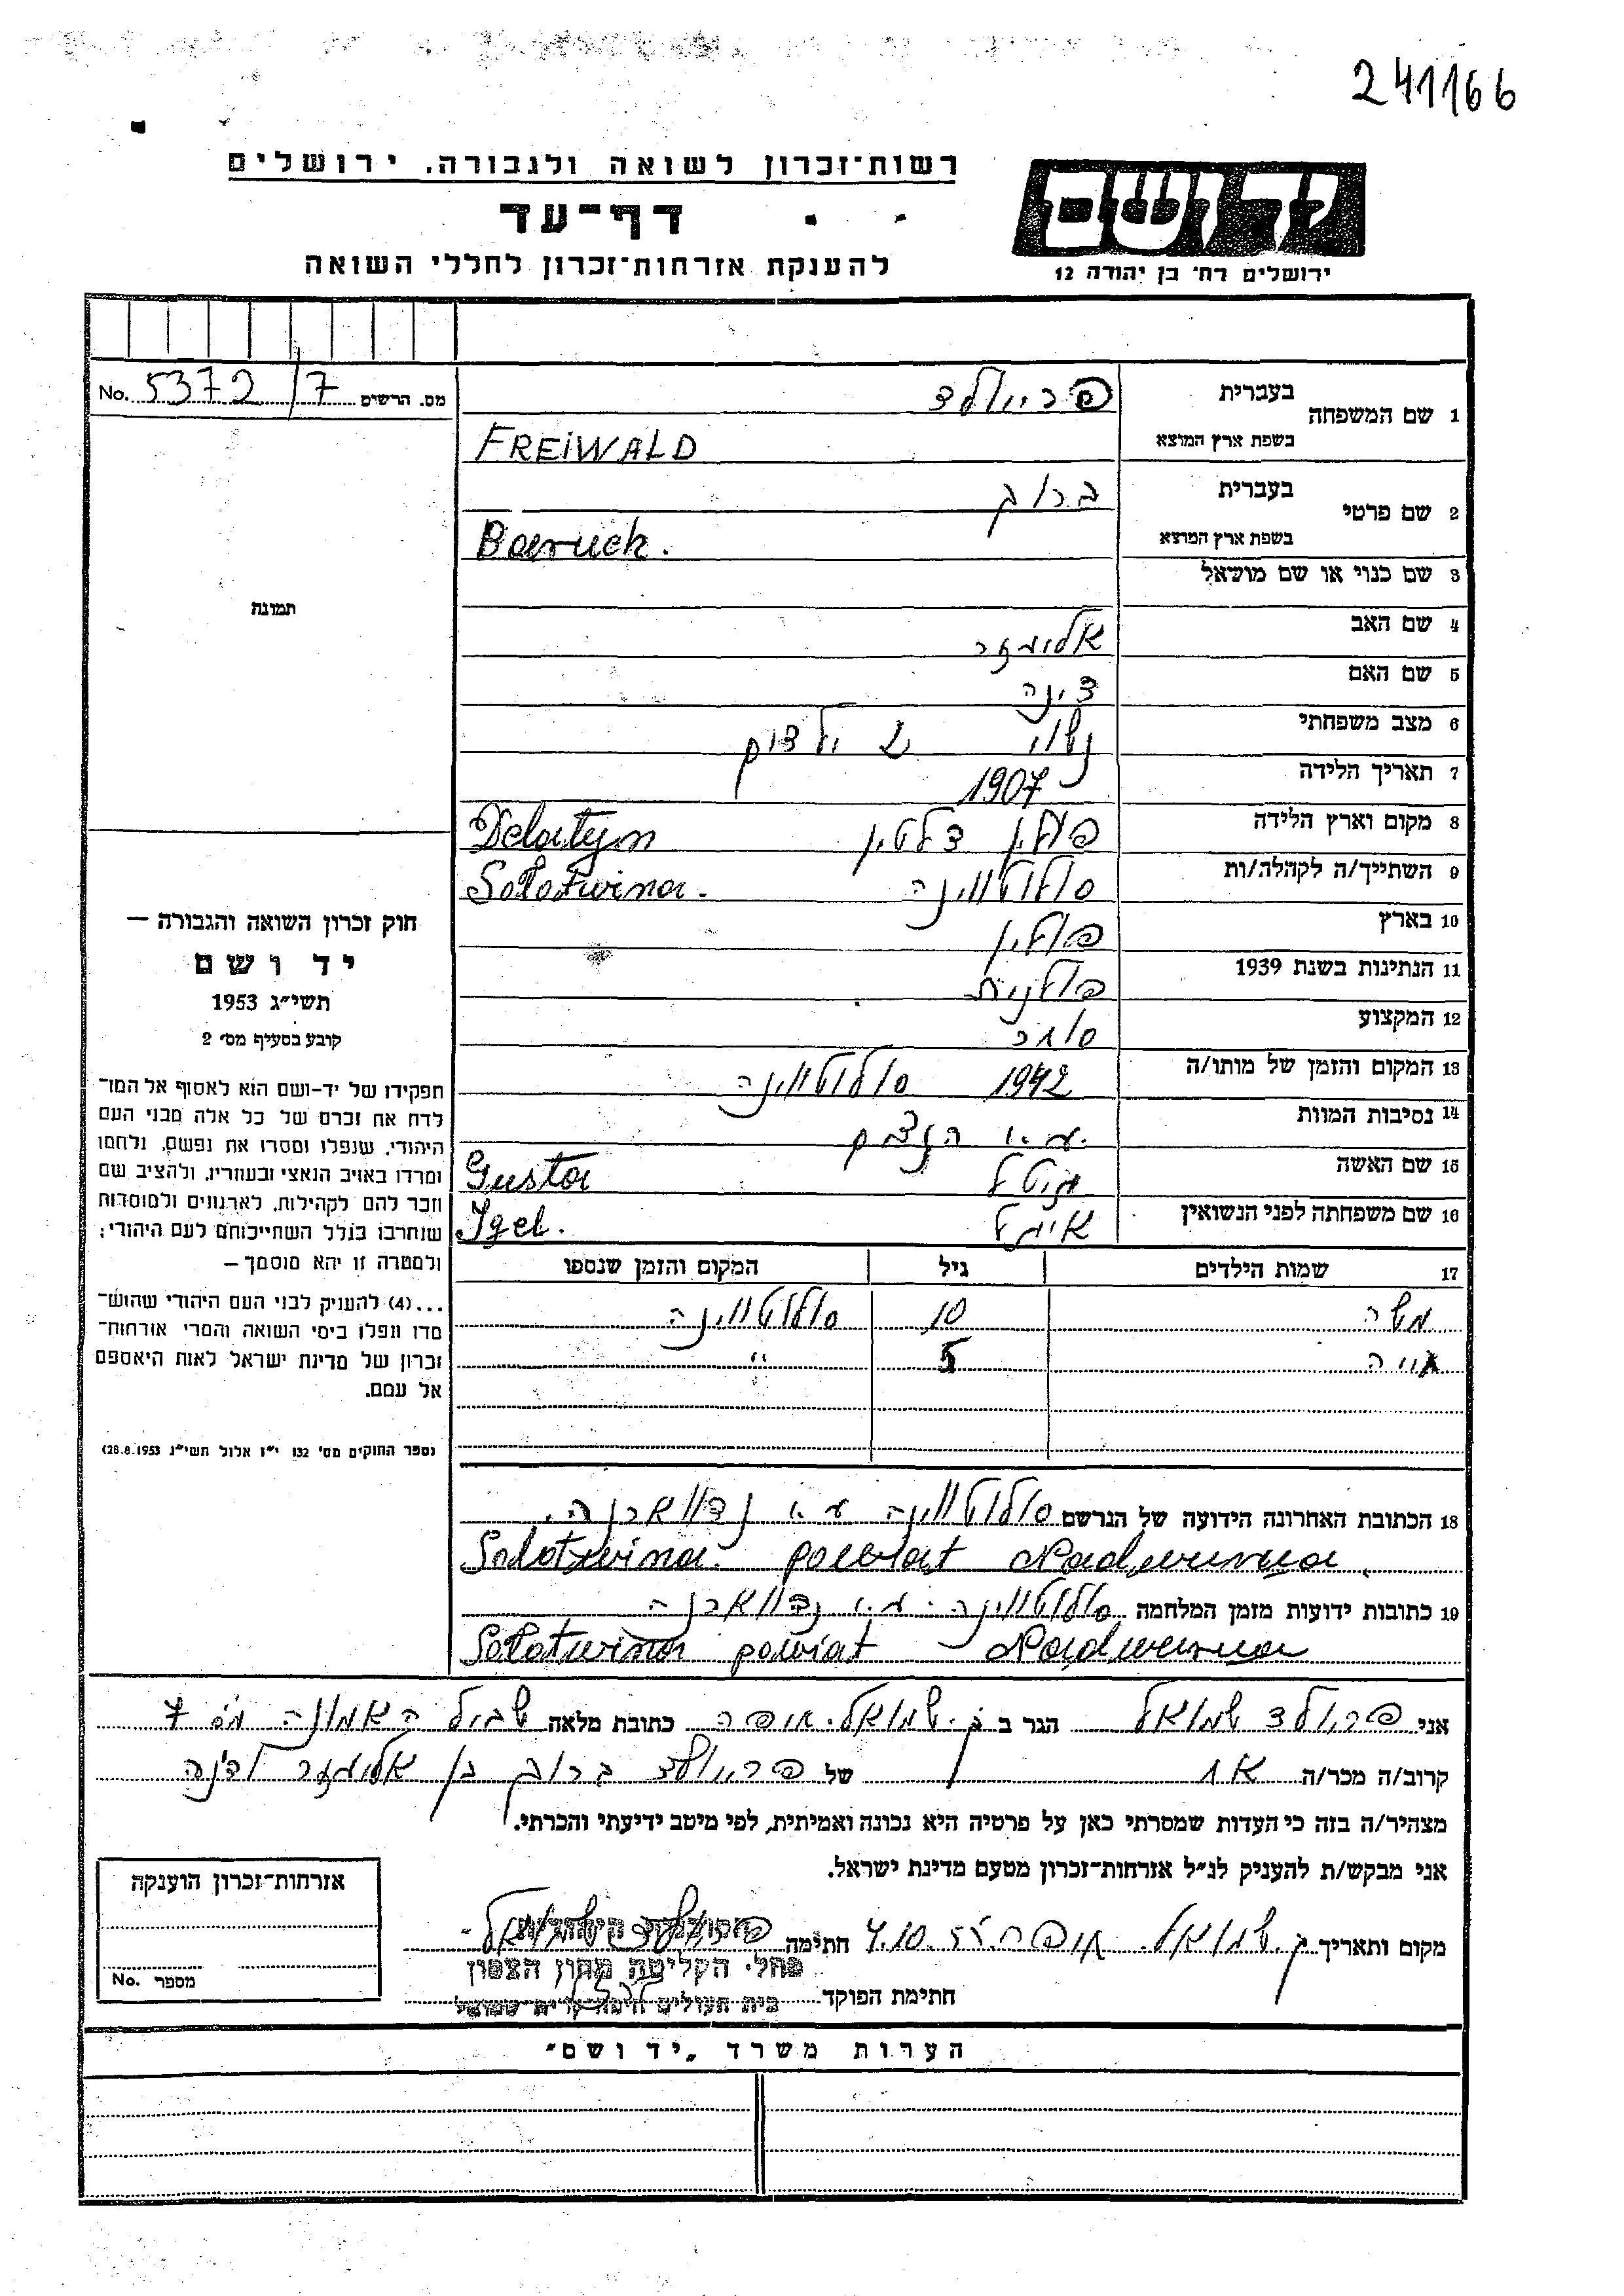 241166
רשות־זכרון לשואה ולגבורה, ירושלים
דף־עד
להענקת אזרחות־זכרון לחללי השואה
יד ושם
ירושלים רח׳ בן יהודה 12
No. 5372/7 מס. הרשים
תמונה
1 שם המשפחה בעברית פרייולד
בשפת ארץ המוצא FREIWALD
2 שם פרטי בעברית ברוך
בשפת ארץ המוצא Baruch.
3 שם כנוי או שם מושאל
4 שם האב אליעזר
5 שם האם דינה
6 מצב משפחתי נשוי 2 ילדים
7 תאריך הלידה 1907
8 מקום וארץ הלידה פולין דלטין Delatyn
9 השתייך/ה לקהלה/ות סולוטווינה Solotwina.
10 בארץ פולין
11 הנתינות בשנת 1939 פולנית
12 המקצוע סוחר
13 המקום והזמן של מותו/ה 1942 סולוטווינה
14 נסיבות המוות
15 שם האשה גיטל Gusta
16 שם משפחתה לפני הנשואין איגל Igel.
17 שמות הילדים גיל המקום והזמן שנספו
משה 10 סולוטווינה
חייה 5 "
חוק זכרון השואה והגבורה —
יד ושם
תשי״ג 1953
קובע בסעיף מס׳ 2
תפקידו של יד־ושם הוא לאסוף אל המו־
לדת את זכרם של כל אלה מבני העם
היהודי, שנפלו ומסרו את נפשם, נלחמו
ומרדו באויב הנאצי ובעוזריו, ולהציב שם
וזכר להם לקהילות, לארגונים ולמוסדות
שנחרבו בגלל השתייכותם לעם היהודי;
ולמטרה זו יהא מוסמך —
...(4) להעניק לבני העם היהודי שהוש־
מדו ונפלו בימי השואה והמרי אזרחות־
זכרון של מדינת ישראל לאות היאספם
אל עמם.
(ספר החוקים מס׳ 132 י״ז אלול תשי״ג 28.8.1953)
18 הכתובת האחרונה הידועה של הנרשם סולוטווינה ע״י נדווארנה.
Solotwina. powiat Nadwurna
19 כתובות ידועות מזמן המלחמה סולוטווינה ע״י נדווארנה
Solotwina powiat Nadwurna
אני פריולד שמואל הגר ב ק. שמואל. חיפה כתובת מלאה שביל האמונה מס 7
קרוב/ה מכר/ה אח של פרייולד ברוך בן אליעזר ודינה
מצהיר/ה בזה כי העדות שמסרתי כאן על פרטיה היא נכונה ואמיתית, לפי מיטב ידיעתי והכרתי.
אני מבקש/ת להעניק לנ״ל אזרחות־זכרון מטעם מדינת ישראל.
מקום ותאריך ק. שמואל. חיפה 4.10.55 חתימה פריולד שמואל
הסוכנות היהודית
מחל׳ הקליטה מחוז הצפון
חתימת הפוקד
בית העולים חיפה קרית שמואל
אזרחות־זכרון הוענקה
מספר No.
הערות משרד „יד ושם״